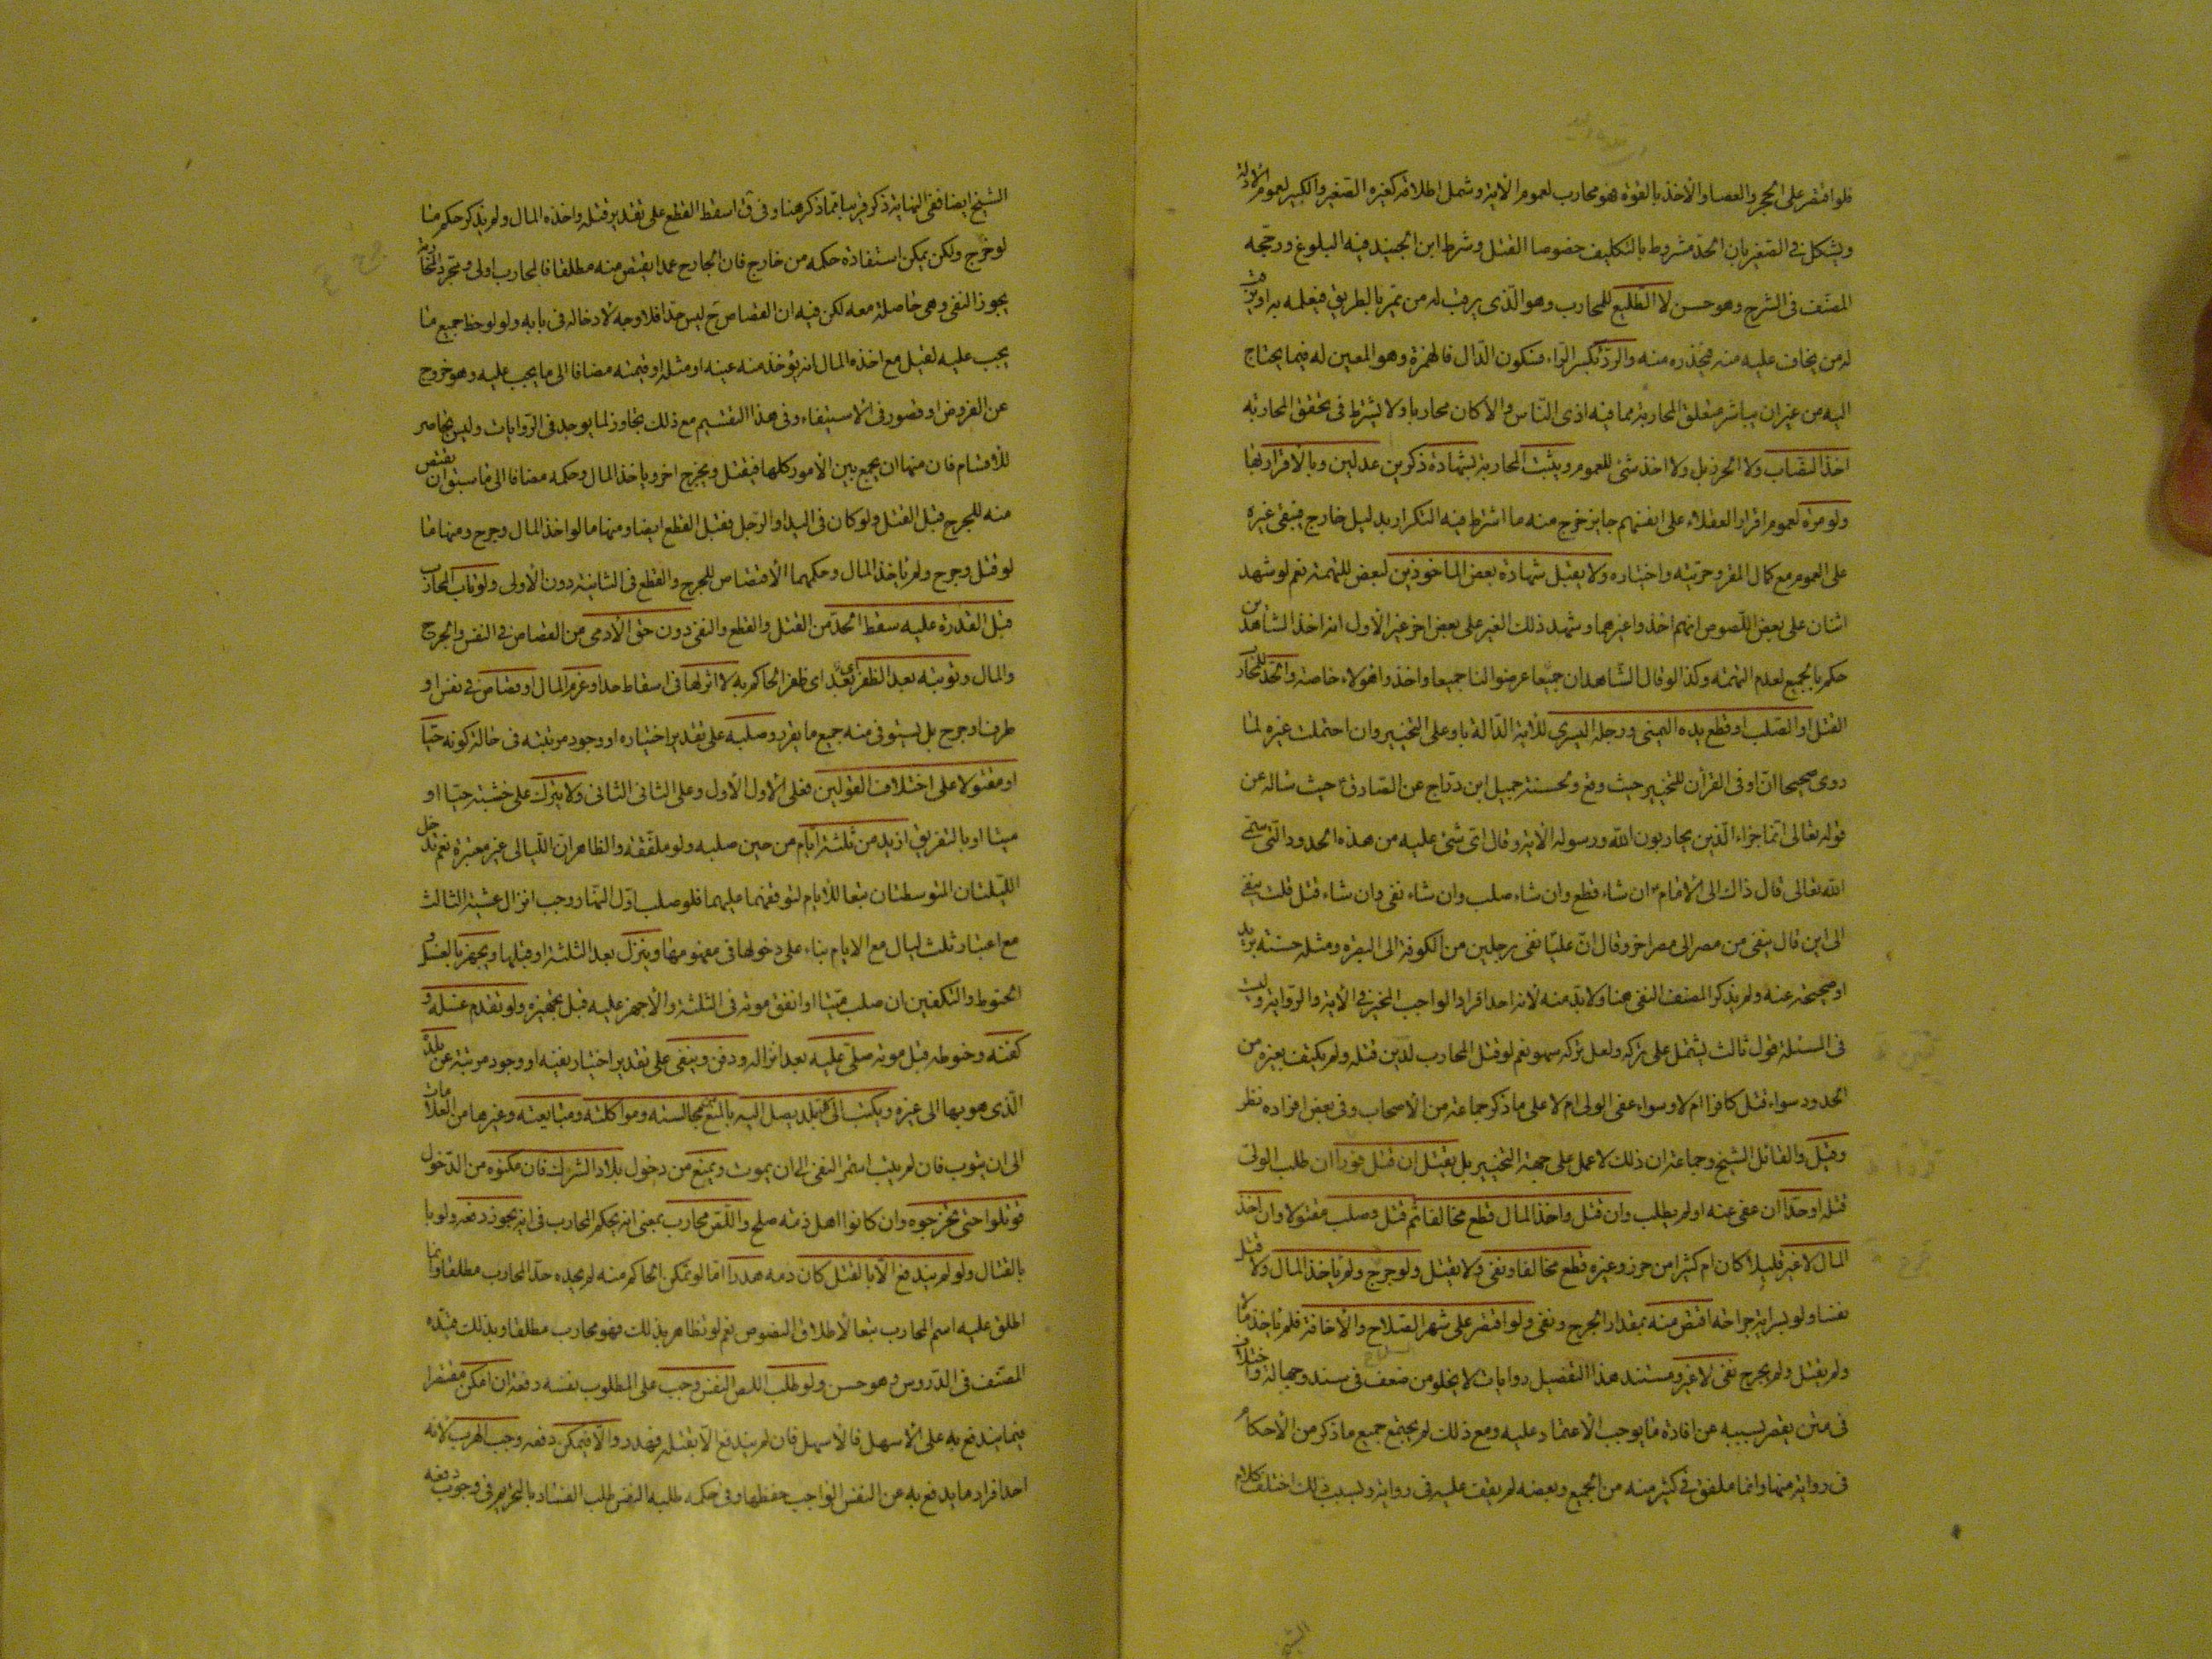 فلو اقتصر على الحجر والعصا والاخذ بالقوة فهو محارب لعموم الآية وشمل اطلاقه كغيره الصغير والكبير لعموم الادلة
ويشكل في الصغير بان الحد مشروط بالتكليف خصوصا القتل وشرط ابن الجنيد فيه البلوغ ورجحه
المصنف في الشرح وهو حسن لا الطليع للمحارب وهو الذي يرقب له من يمر بالطريق فيعلمه به او يرقب
له من يخاف عليه منه فيحذره منه والردء بكسر الراء فسكون الدال فالهمزة وهو المعين له فيما يحتاج
اليه من غير ان يباشر متعلق المحاربة مما فيه اذى الناس والا كان محاربا ولا يشترط في تحقق المحاربة
اخذ النصاب ولا الحرز بل ولا اخذ شئ للعموم ويثبت المحاربة بشهادة ذكرين عدلين وبالاقرار بها
ولو مرة لعموم اقرار العقلاء على انفسهم جايز خرج منه ما اشترط فيه التكرار بدليل خارج فيبقى غيره
على العموم مع كمال المقر وحريته واختياره ولا يقبل شهادة بعض الماخوذين لبعض للتهمة نعم لو شهد
اثنان على بعض اللصوص انهم اخذوا غيرهما وشهد ذلك الغير على بعض اخر غير الاول انه اخذ الشاهدين
حكم بالجميع لعدم التهمة وكذا لو قال الشاهدان جميعا عرضوا لنا جميعا واخذوا هؤلاء خاصة والحد للمحارب
القتل او الصلب او قطع يده اليمنى ورجله اليسرى للآية الدالة باو على التخيير وان احتملت غيره لما
روى صحيحا ان او في القرآن للتخيير حيث وقع ولحسنة جميل ابن دراج عن الصادق ع حيث ساله عن
قوله تعالى انما جزاء الذين يحاربون الله ورسوله الآية وقال اى شئ عليه من هذه الحدود التي سمى
الله تعالى قال ذاك الى الامام ان شاء قطع وان شاء صلب وان شاء نفى وان شاء قتل قلت ينفى
الى اين قال ينفى من مصر الى مصر اخر وقال ان عليا نفى رجلين من الكوفة الى البصرة ومثله حسنة بريد
او صحيحته عنه ولم يذكر المصنف النفي هنا ولا بد منه لانه احد افراد الواجب المخير في الآية والرواية وليس
في المسئلة قول ثالث يشتمل على تركه ولعل تركه سهو نعم لو قتل المحارب لدين قتله ولم يكتف بغيره من
الحدود سواء قتل كافرا ام لا وسواء عفى الولى ام لا على ما ذكر جماعة من الاصحاب وفي بعض افراده نظر
وقيل والقائل الشيخ وجماعة ان ذلك لا عمل على جهة التخيير بل يقتل ان قتل قودا ان طلب الولى
قتله او حدا ان عفى عنه او لم يطلب وان قتل واخذ المال قطع مخالفا ثم قتل وصلب مقتولا وان اخذ
المال لا غير قليلا كان ام كثيرا من حرز وغيره قطع مخالفا ونفى ولا يقتل ولو جرح ولم ياخذ المال ولا قتل
نفسا ولو بسراية جراحته اقتص منه بمقدار الجرح ونفى ولو اقتصر على شهر السلاح والاخافة فلم ياخذ مالا
ولم يقتل ولم يجرح نفى لا غير ومستند هذا التفصيل روايات لا يخلو من ضعف في سند وجهالة واختلاف
في متن يقصر بسببه عن افادة ما يوجب الاعتماد عليه ومع ذلك لم يجتمع جميع ما ذكر من الاحكام
في رواية منها وانما ملفق في كثير منه من الجميع وبعضه لم يقف عليه في رواية وبسبب ذلك اختلف كلام
الشيخ
الشيخ ايضا ففي النهاية ذكر قريبا مما ذكر هنا وفي ف اسقط القطع على تقدير قتله واخذه المال ولم يذكر حكم ما
لو جرح ولكن يمكن استفادة حكمه من خارج فان الجارح عمدا يقتص منه مطلقا فالمحارب اولى وتجرد المحاربة
يجوز النفى وهى حاصلة معه لكن فيه ان القصاص ح ليس حدا فلا وجه لادخاله في بابه ولو لوحظ جميع ما
يجب عليه لقيل مع اخذه المال انه يؤخذ منه عينه او مثله او قيمته مضافا الى ما يجب عليه وهو خروج
عن الفرض او قصور في الاستيفاء وفي هذا التقسيم مع ذلك تجاوز لما يوجد في الروايات وليس بحاصر
للاقسام فان منها ان يجمع بين الامور كلها فيقتل ويجرح اخر وياخذ المال وحكمه مضافا الى ما سبق ان يقتص
منه للجرح قبل القتل ولو كان في اليد او الرجل فقبل القطع ايضا ومنها ما لو اخذ المال وجرح ومنها ما
لو قتل وجرح ولم ياخذ المال وحكمهما الاقتصاص للجرح والقطع في الثانية دون الاولى ولو تاب المحارب
قبل القدرة عليه سقط الحد من القتل والقطع والنفى دون حق الآدمى من القصاص في النفس والجرح
والمال وتوبته بعد الظفر اى بعد اى ظفر الحاكم به لا اثر لها في اسقاط حد او غرم المال او قصاص في نفس او
طرف او جرح بل يستوفى منه جميع ما يقرر وصلبه على تقدير اختياره او وجود مرتبته في حالة كونه حيا
او مقتولا على اختلاف القولين فعلى الاول الاول وعلى الثاني الثاني ولا يترك على خشبته حيا او
ميتا او بالتفريق ازيد من ثلثة ايام من حين صلبه ولو ملفقة والظاهر ان الليالى غير معتبرة نعم تدخل
الليلتان المتوسطتان تبعا للايام لتوقفهما عليهما فلو صلب اول النهار وجب انزال عشية الثالث
مع اعتبار ثلث ليال مع الايام بناء على دخولها في مفهومها وينزل بعد الثلثة او قبلها ويجهز بالغسل و
الحنوط والتكفين ان صلب ميتا او اتفق موته في الثلثة والا جهز عليه قبل تجهيزه ولو تقدم غسله و
كفنه وحنوطه قبل موته صلى عليه بعد انزاله ودفن وينفى على تقدير اختيار نفيه او وجود مرتبته عن بلده
الذي هو بها الى غيره ويكتب الى كل بلد يصل اليه بالمنع من مجالسته ومواكلته ومبايعته وغيرها من المعاملات
الى ان يتوب فان لم يتب استمر النفى الى ان يموت ويمنع من دخول بلاد الشرك فان مكنوه من الدخول
قوتلوا حتى يخرجوه وان كانوا اهل ذمة صلح واللص محارب بمعنى انه بحكم المحارب في انه يجوز دفعه ولو با
بالقتال ولو لم يندفع الا بالقتل كان دمه هدرا اما لو تمكن الحاكم منه لم يحده حد المحارب مطلقا وانما
اطلق عليه اسم المحارب تبعا لاطلاق النصوص نعم لو تظاهر بذلك فهو محارب مطلقا وبذلك قيده
المصنف في الدروس وهو حسن ولو طلب اللص النفس وجب على المطلوب نفسه دفعه ان امكن مقتصرا
فيما يندفع به على الاسهل فالاسهل فان لم يندفع الا بقتله فهدر والا فيمكن دفعه وجب الهرب لانه
احد افراد ما يدفع به عن النفس الواجب حفظها وفي حكمه طلبه النفس طلب الفساد بالحريم في وجوب دفعه